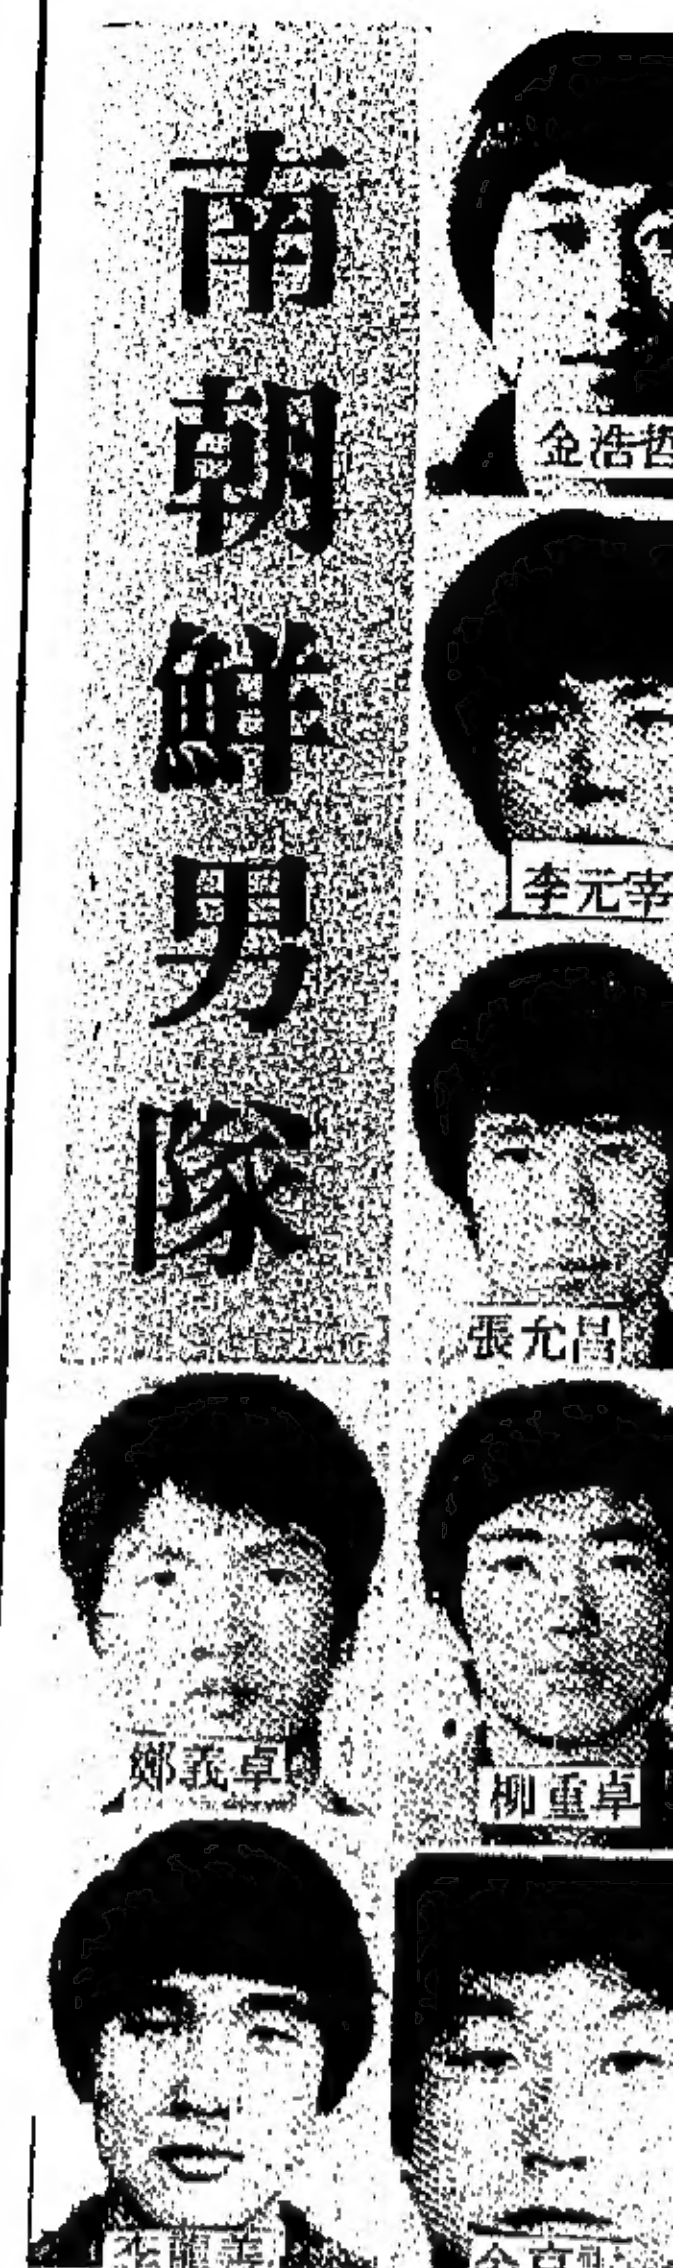 南朝鮮男隊
金浩哲
李元宰
張允昌
鄭義卓
柳重卓